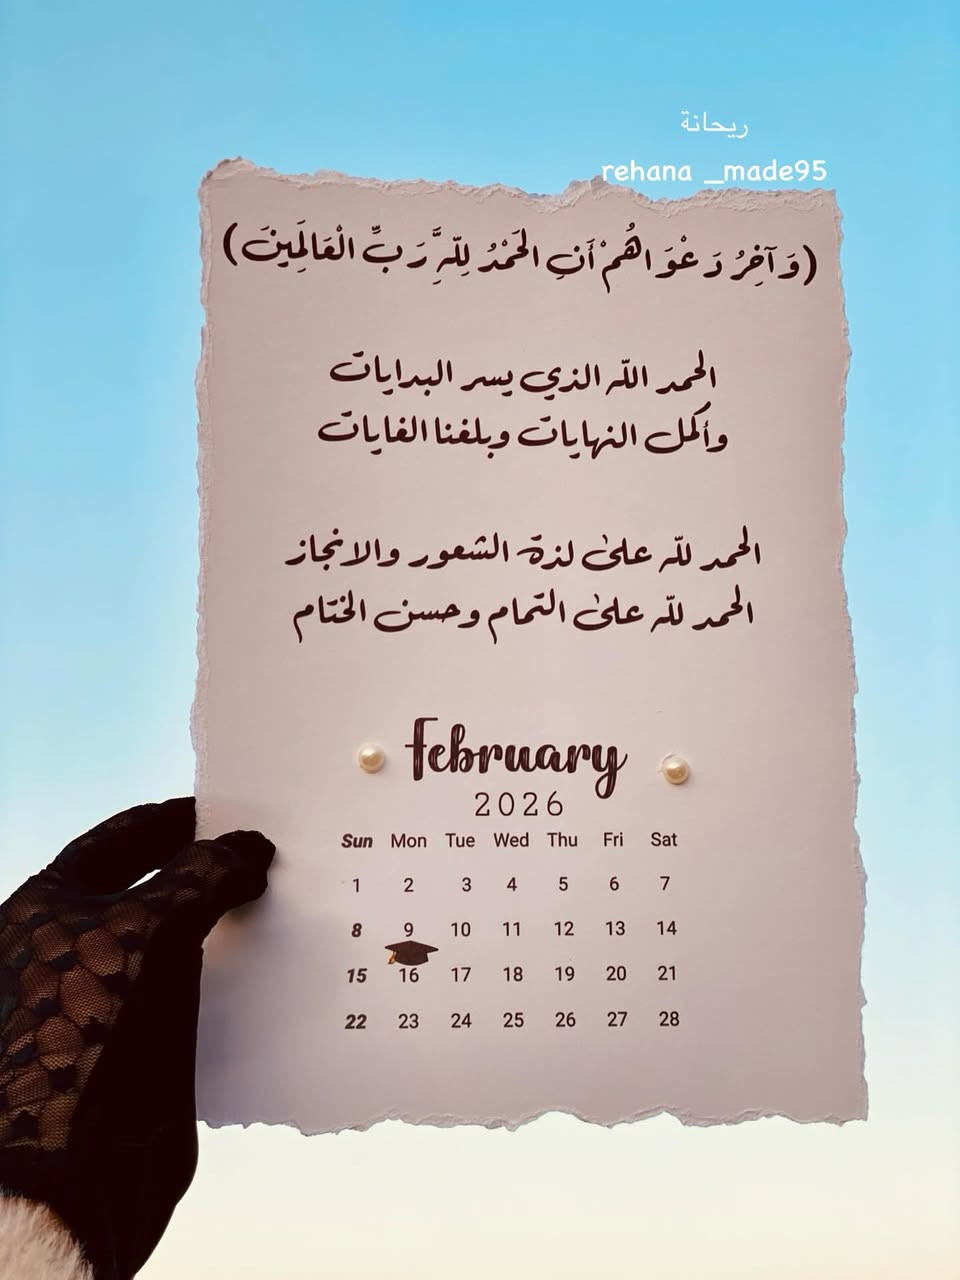 ريحانة
rehana _made95
(وَآخِرُ دَعْوَاهُمْ أَنِ الْحَمْدُ لِلَّهِ رَبِّ الْعَالَمِينَ)
الحمد اللّه الذي يسر البدايات
وأكمل النهايات وبلغنا الغايات
الحمد للّه على لذة الشعور والانجاز
الحمد للّه على التمام وحسن الختام
February
2026
Sun Mon Tue Wed Thu Fri Sat
1 2 3 4 5 6 7
8 9 10 11 12 13 14
15 16 17 18 19 20 21
22 23 24 25 26 27 28